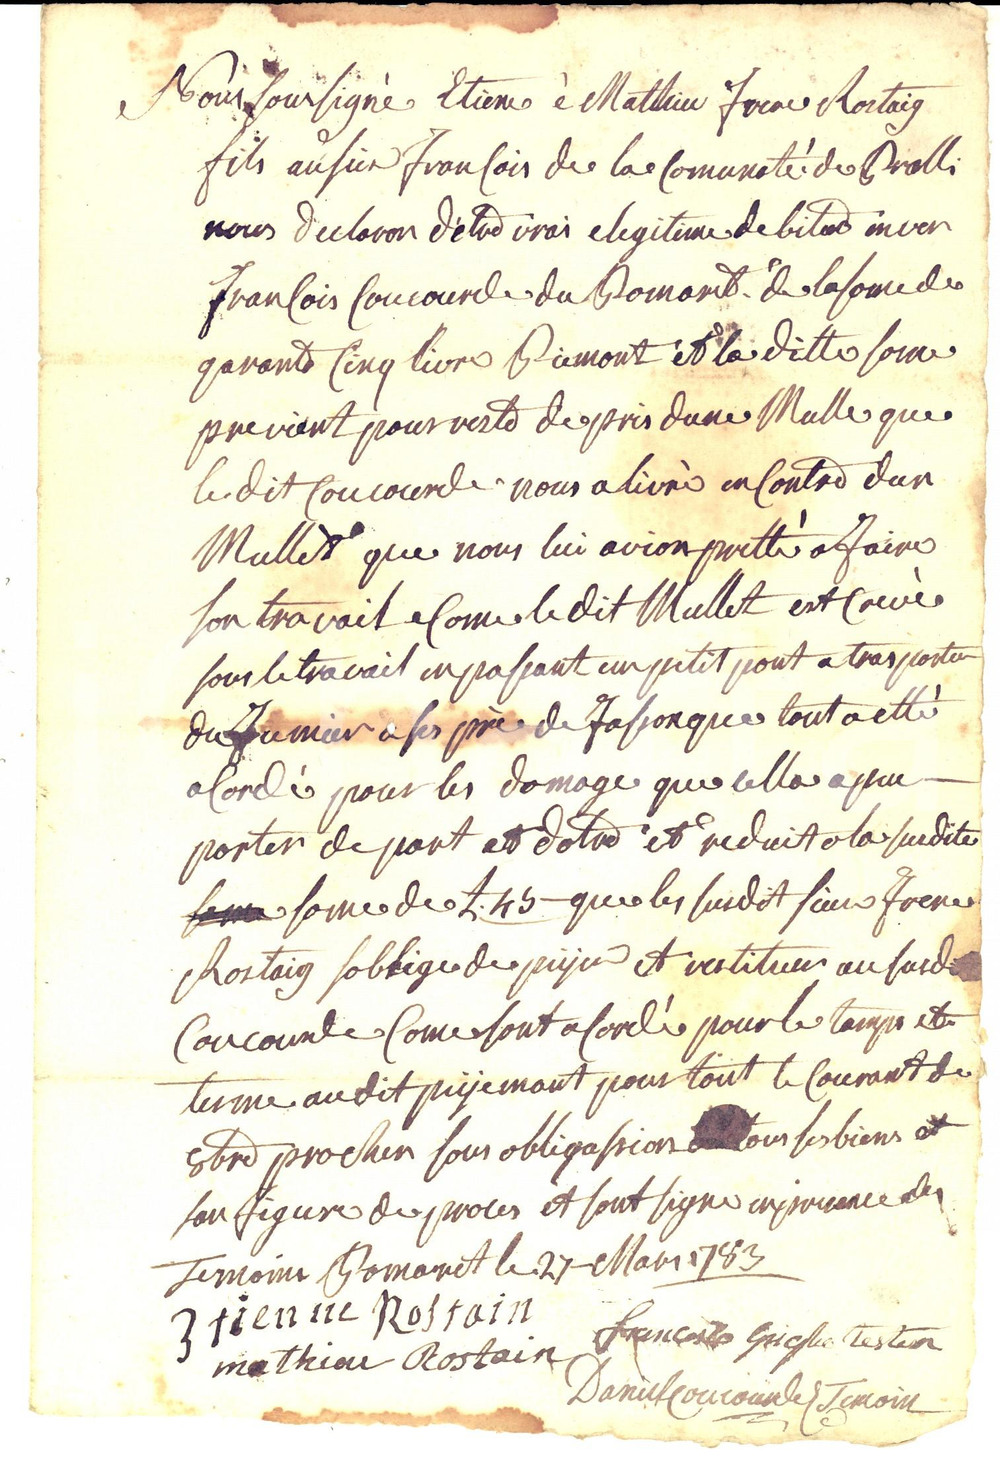 Nous sous signé Etiene è Mathieu frere Rostaig
fils au sieur francois de la Comunoté de Pralli
nous declaron d'etre vrai elegitime debitere inver
francois Coucourde du Pomaret de la some de
garante Cinq livre Piemont et la ditte some
previent pour reste de pris dune Mulle que
le dit Coucourde nous a livrè en Contre dun
Mullet que nous lui avion pretté a faire
son travail e Come le dit Mullet est Crevè
sous le travail en passant un petit pont a trasporter
du fumier a ses prè de fasson que tout a etté
a Cordé pour les domage que cella a pu
porter de part et dotre et reduit a la susdite
some de L. 45 que les susdit sieur frere
Rostaig s'oblige de pyer et restituer au susdi
Coucourde Come sont a Cordé pour le temps et
terme au dit pyement pour tout le Courant de
8bre prochen sous obligassion tous ses biens et
son figure de proces et sont signe en presence des
Temoins Pomaret le 27 Mars 1783
Etienne Rostain
mathieu Rostain
francois testem
Daniel Coucourde Temoin